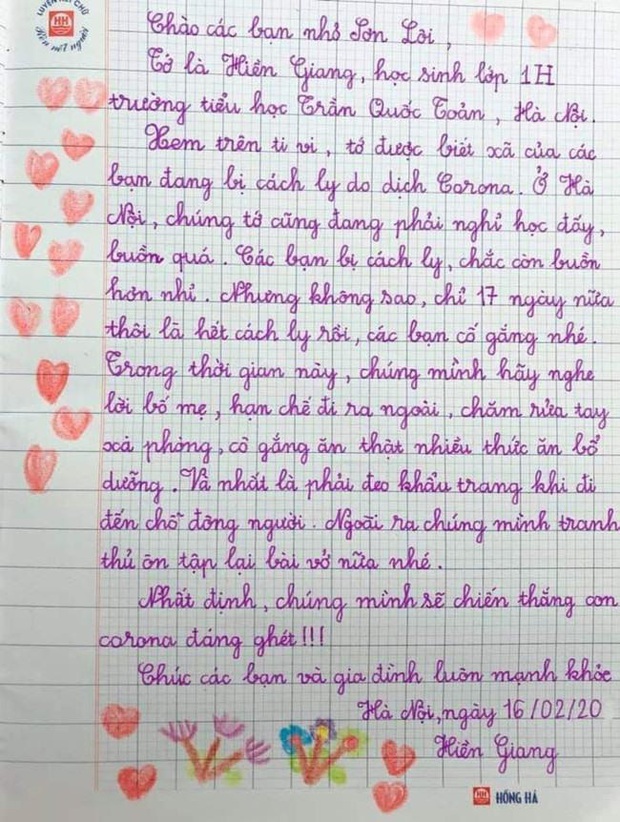 LUYỆN VIẾT CHỮ
HH
Nên nét người
Chào các bạn nhỏ Sơn Lôi,
Tớ là Hiền Giang, học sinh lớp 1H
trường tiểu học Trần Quốc Toản, Hà Nội.
Xem trên ti vi, tớ được biết xã của các
bạn đang bị cách ly do dịch Corona. Ở Hà
Nội, chúng tớ cũng đang phải nghỉ học đấy,
buồn quá. Các bạn bị cách ly, chắc còn buồn
hơn nhỉ. Nhưng không sao, chỉ 17 ngày nữa
thôi là hết cách ly rồi, các bạn cố gắng nhé.
Trong thời gian này, chúng mình hãy nghe
lời bố mẹ, hạn chế đi ra ngoài, chăm rửa tay
xà phòng, cố gắng ăn thật nhiều thức ăn bổ
dưỡng. Và nhất là phải đeo khẩu trang khi đi
đến chỗ đông người. Ngoài ra chúng mình tranh
thủ ôn tập lại bài vở nữa nhé.
Nhất định, chúng mình sẽ chiến thắng con
corona đáng ghét!!!
Chúc các bạn và gia đình luôn mạnh khỏe
Hà Nội, ngày 16/02/20
Hiền Giang
HH HỒNG HÀ